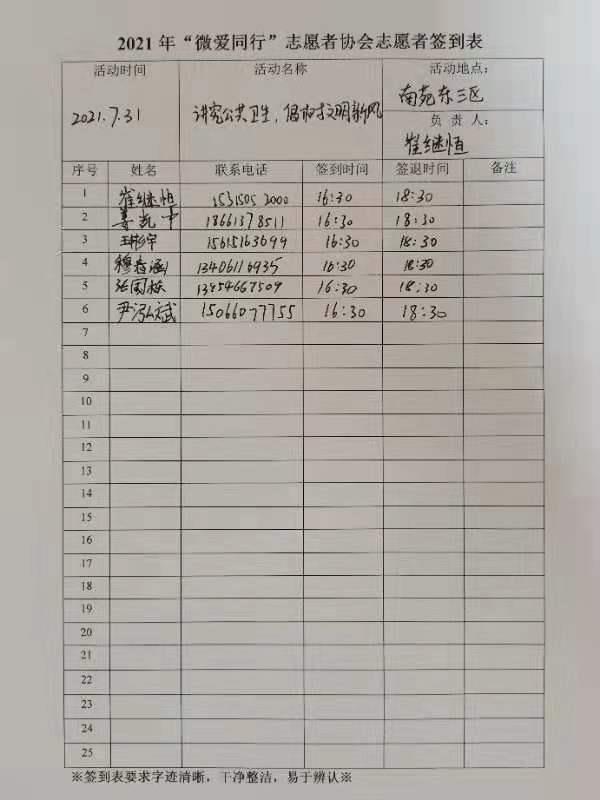 2021 年“微爱同行”志愿者协会志愿者签到表
活动时间 活动名称 活动地点：
2021.7.31 讲究公共卫生，倡树文明新风 南苑东三区
负 责 人：
崔继恒
序号 姓名 联系电话 签到时间 签退时间 备注
1 崔继恒 15315052000 16:30 18:30
2 姜凯中 18661378511 16:30 18:30
3 王彬宇 15615163699 16:30 18:30
4 穆春涵 13406116935 16:30 18:30
5 张国栋 13954667509 16:30 18:30
6 尹泓斌 15066077755 16:30 18:30
7
8
9
10
11
12
13
14
15
16
17
18
19
20
21
22
23
24
25
※签到表要求字迹清晰，干净整洁，易于辨认※